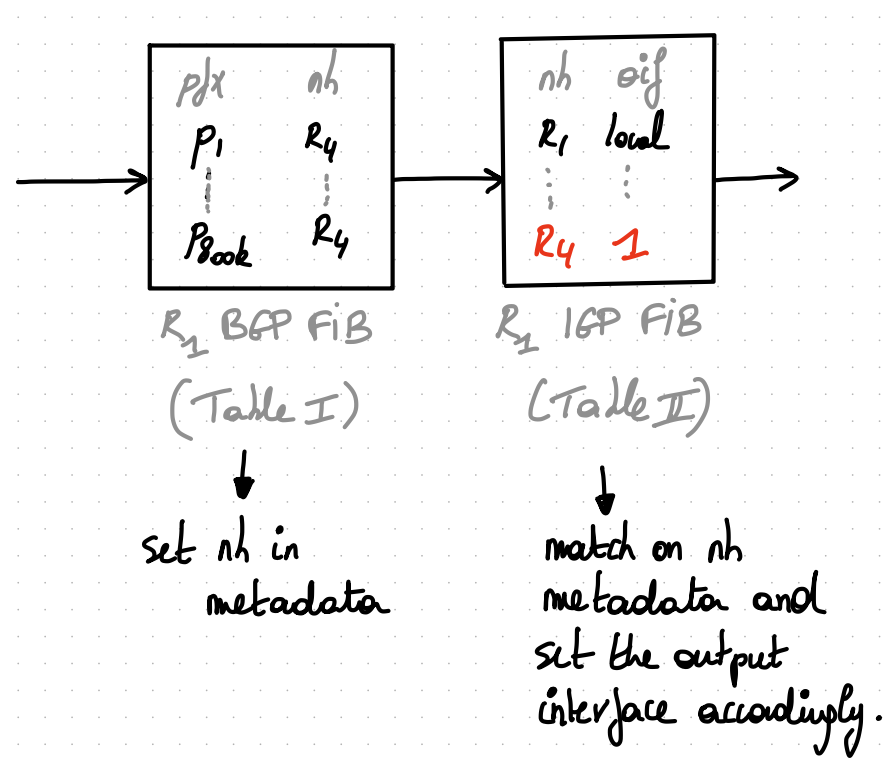 pfx nh
P1 R4
P800k R4
R1 BGP FiB
(Table I)
set nh in
metadata
nh oif
R1 local
R4 1
R1 IGP FiB
(Table II)
match on nh
metadata and
set the output
interface accordingly.